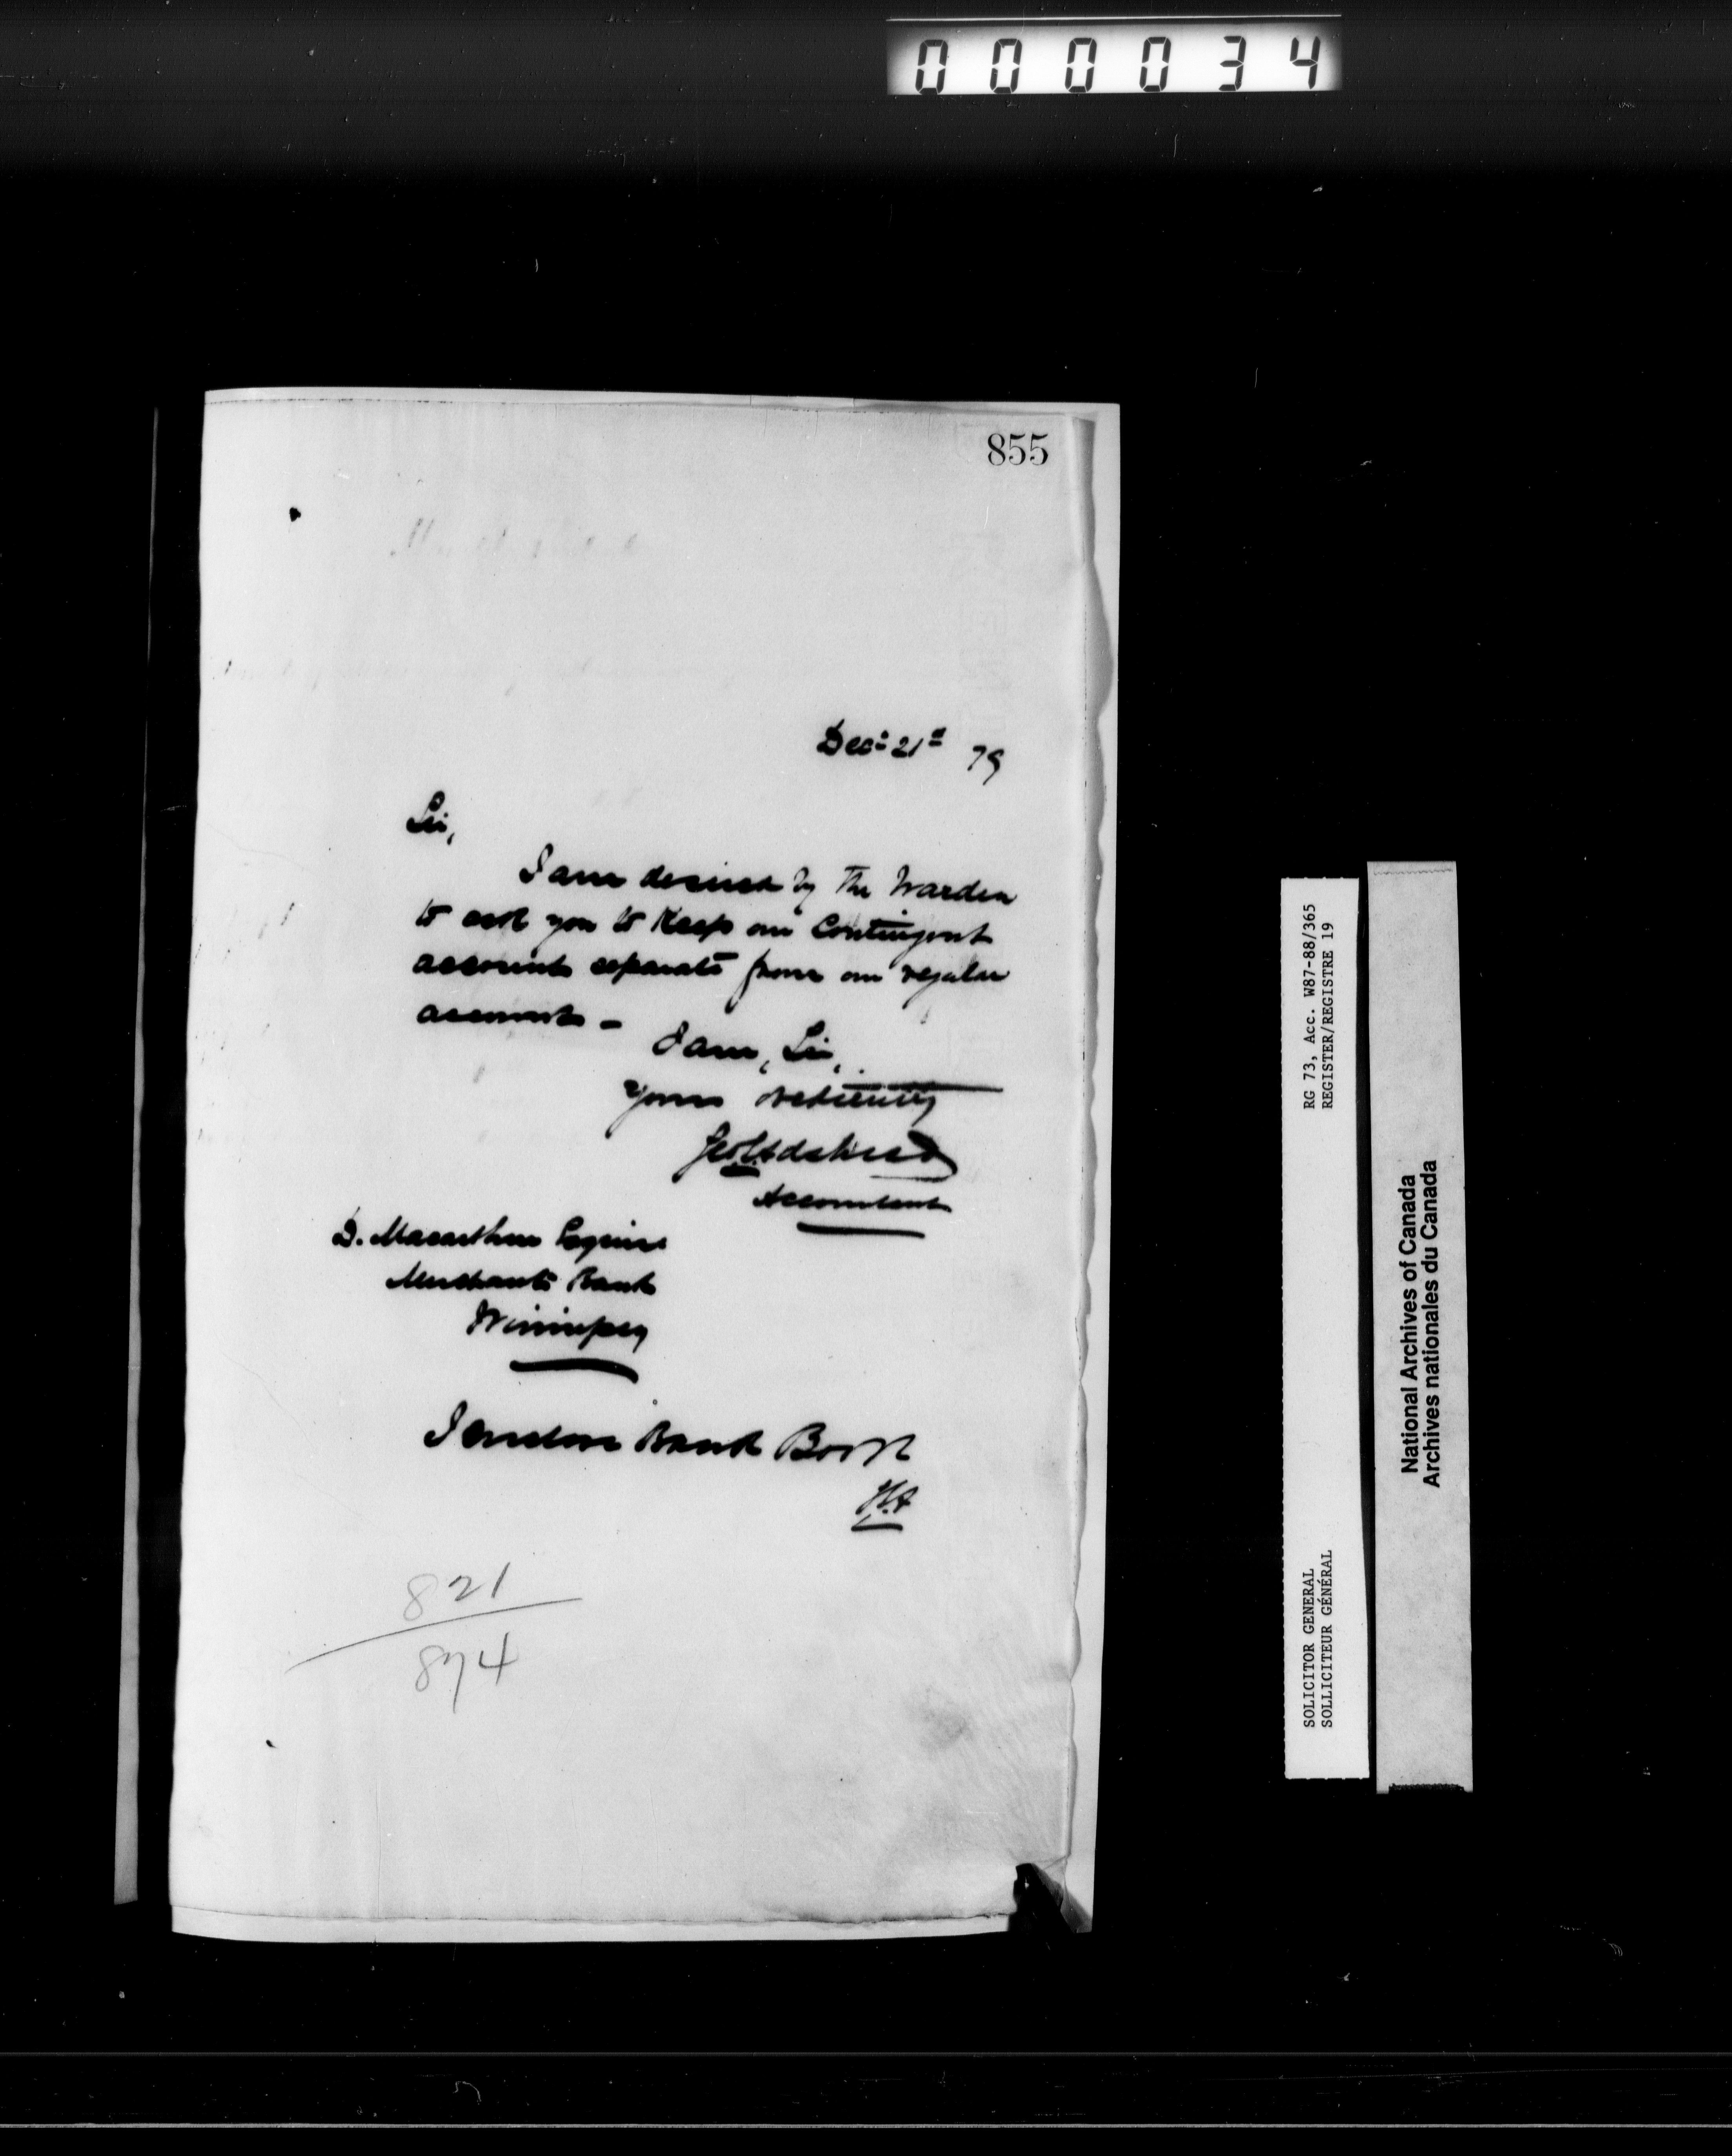 000034
855
Decr 21st 79
Sir,
I am desired by the Warden
to ask you to keep our Contingent
accounts separate from our regular
accounts –
I am, Sir,
Yours obediently
Accountant
D. Macarthur Esquire
Merchants Bank
Winnipeg
I enclose Bank Book
821
874
RG 73, Acc. W87-88/365
REGISTER/REGISTRE 19
SOLICITOR GENERAL
SOLLICITEUR GÉNÉRAL
National Archives of Canada
Archives nationales du Canada